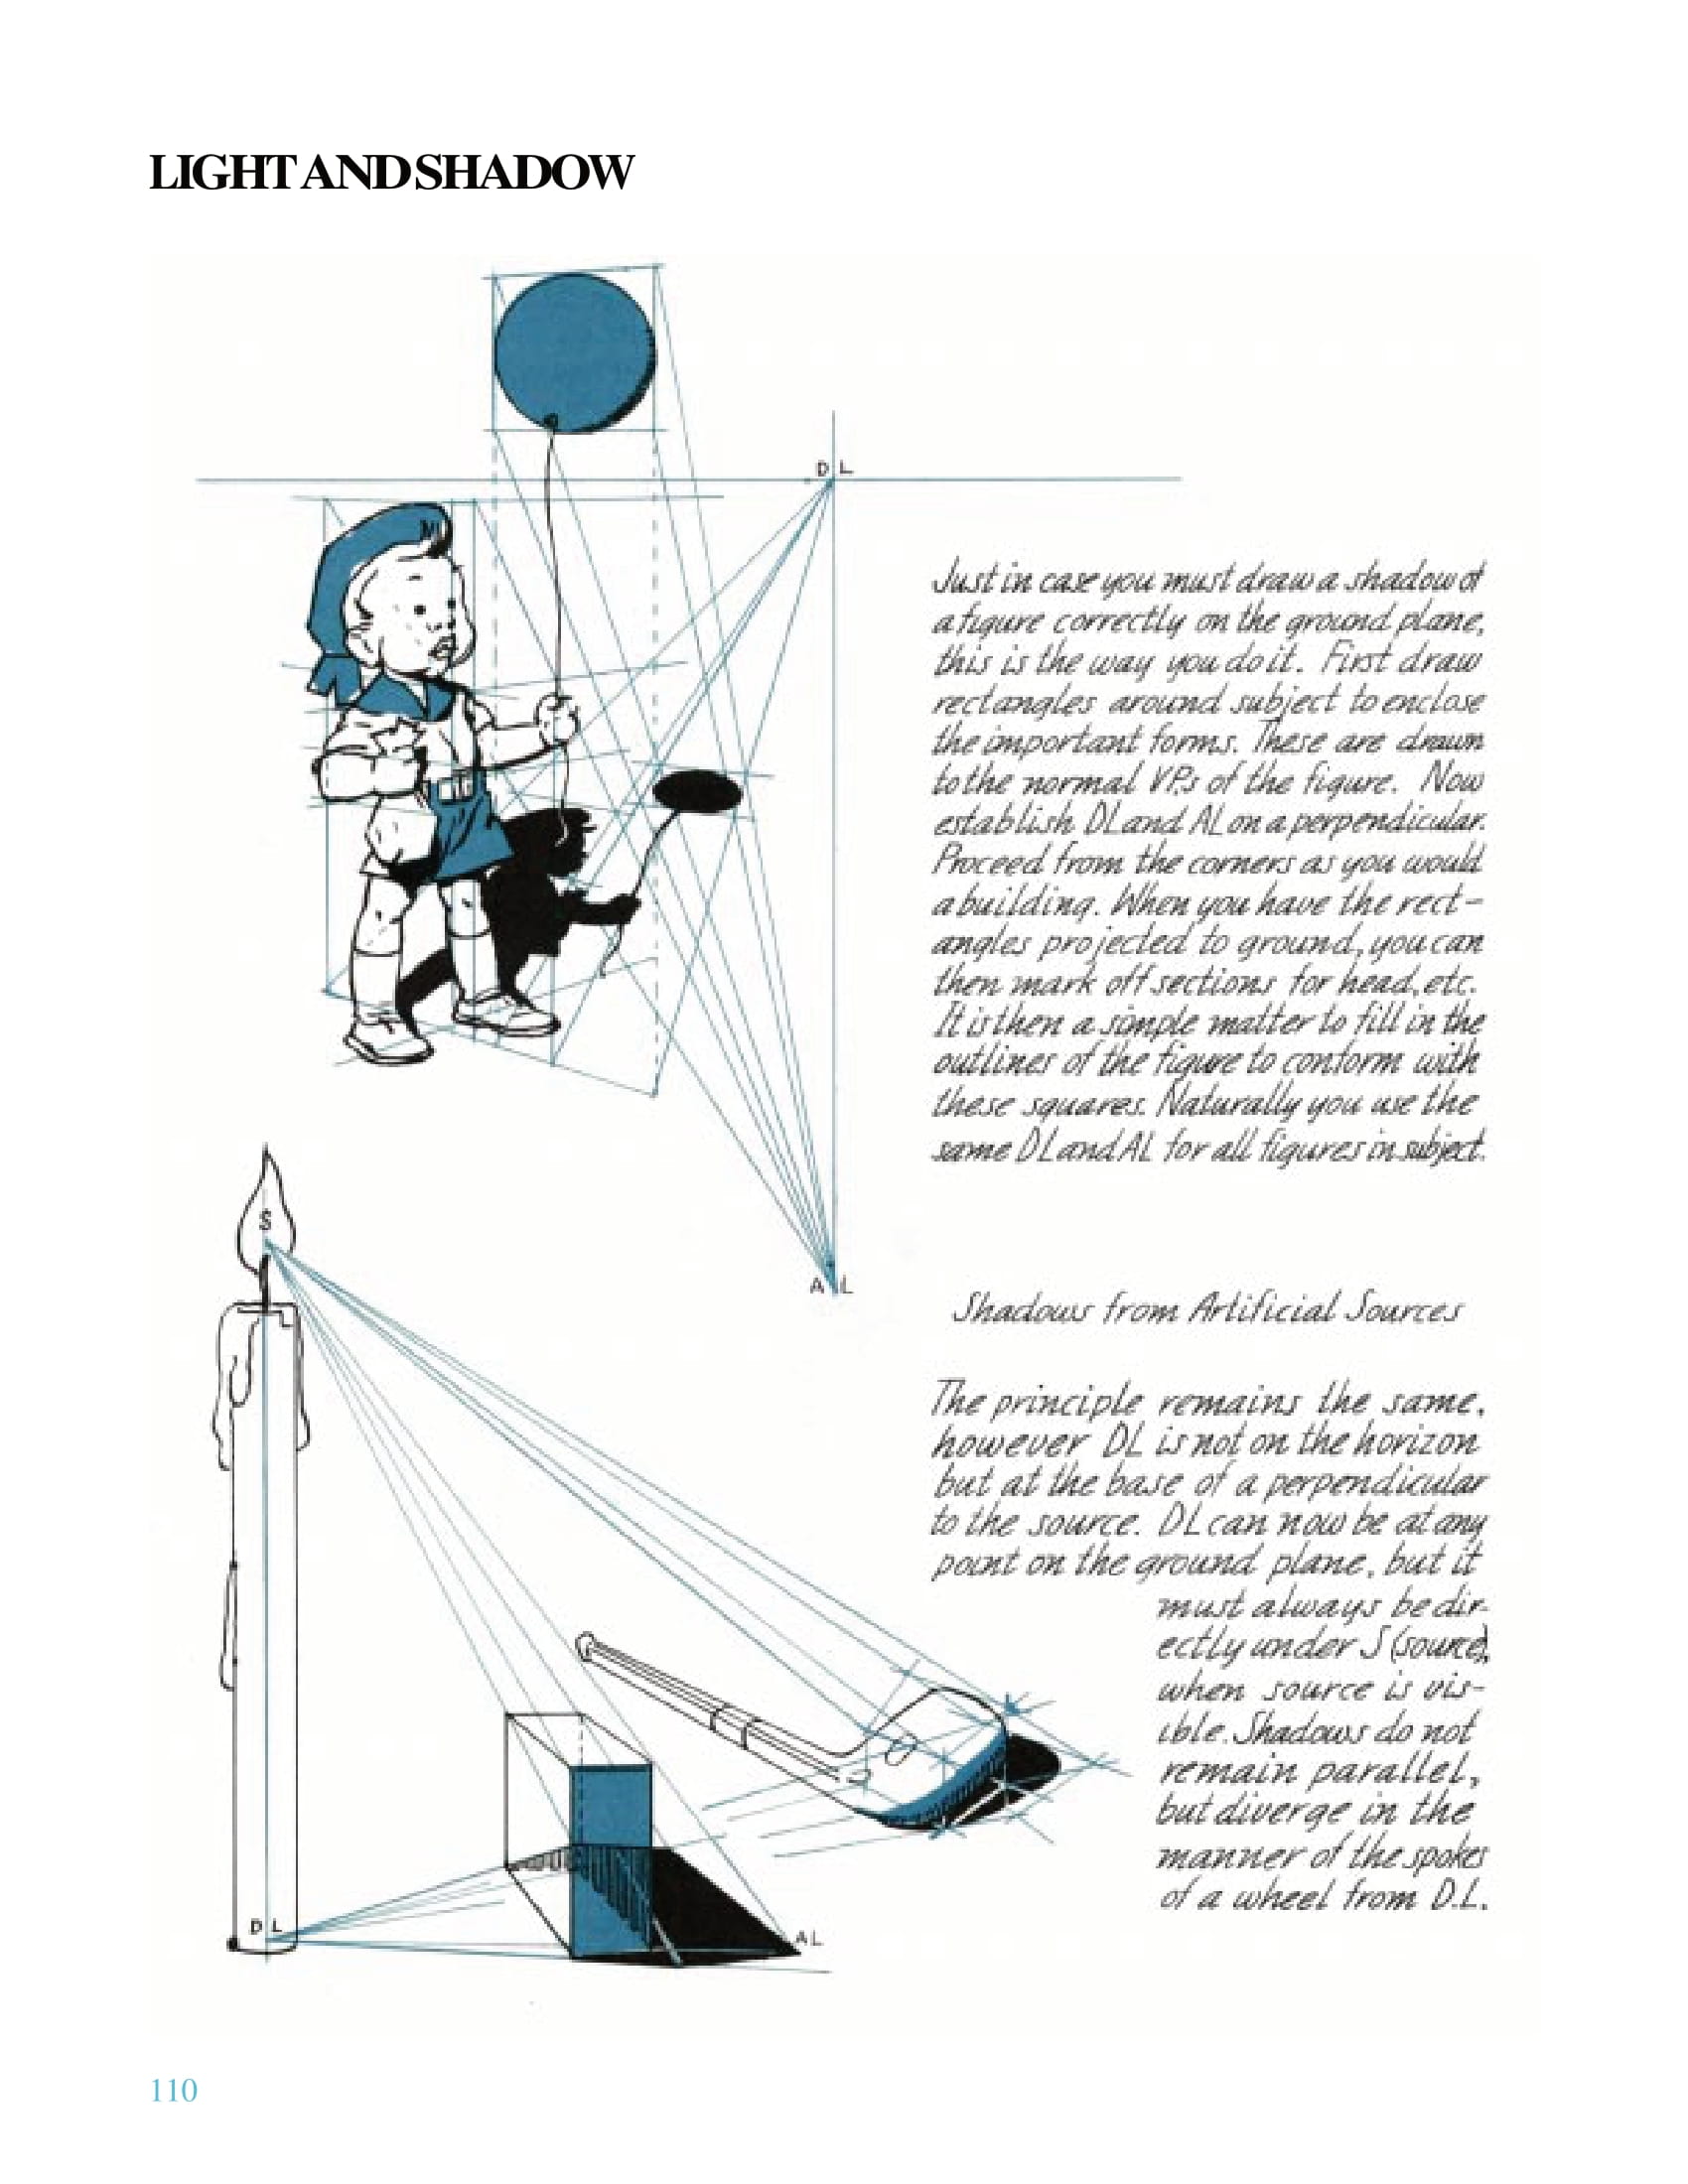 LIGHT AND SHADOW
D L
N
Just in case you must draw a shadow of
a figure correctly on the ground plane,
this is the way you do it. First draw
rectangles around subject to enclose
the important forms. These are drawn
to the normal VP.s of the figure. Now
establish DL and AL on a perpendicular.
Proceed from the corners as you would
a building. When you have the rect-
angles projected to ground, you can
then mark off sections for head, etc.
It is then a simple matter to fill in the
outlines of the figure to conform with
these squares. Naturally you use the
same DL and AL for all figures in subject.
S
A L
Shadows from Artificial Sources
The principle remains the same,
however DL is not on the horizon
but at the base of a perpendicular
to the source. DL can now be at any
point on the ground plane, but it
must always be dir-
ectly under S (source),
when source is vis-
ible. Shadows do not
remain parallel,
but diverge in the
manner of the spokes
of a wheel from D.L.
D L
AL
110